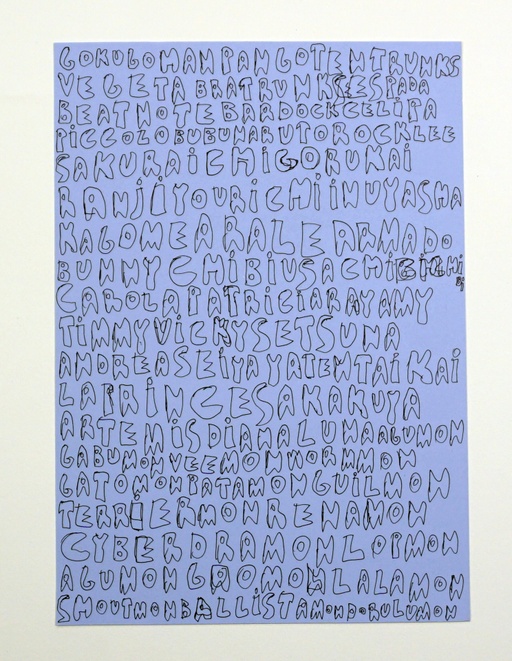 GOKUGOMANPANGOTENTRUNKS
VEGETABRATRUNKSESPADA
BEATNOTEBARDOCKCELIPA
PICCOLOBUBUNARUTOROCKLEE
SAKURAICHIGORUKAI
RANJIYOURICHIINUYASHA
KAGOMEARALEARMADO
BUNNYCHIBIUSACHI
CAROLAPATRICIARAYAMY
TIMMYVICKYSETSUNA
ANDREASEIYAYATENTAIKAI
LAPRINCESAKAKUYA
ARTEMISDIANALUNAAGUMON
GABUMONVEEMONWORMMON
GATOMONPATAMONGUILMON
TERRIERMONRENAMON
CYBERDRAMONLOPMON
AGUNONGAOMONLALAMON
SHOUTMONBALLISTAMONDORULUMON